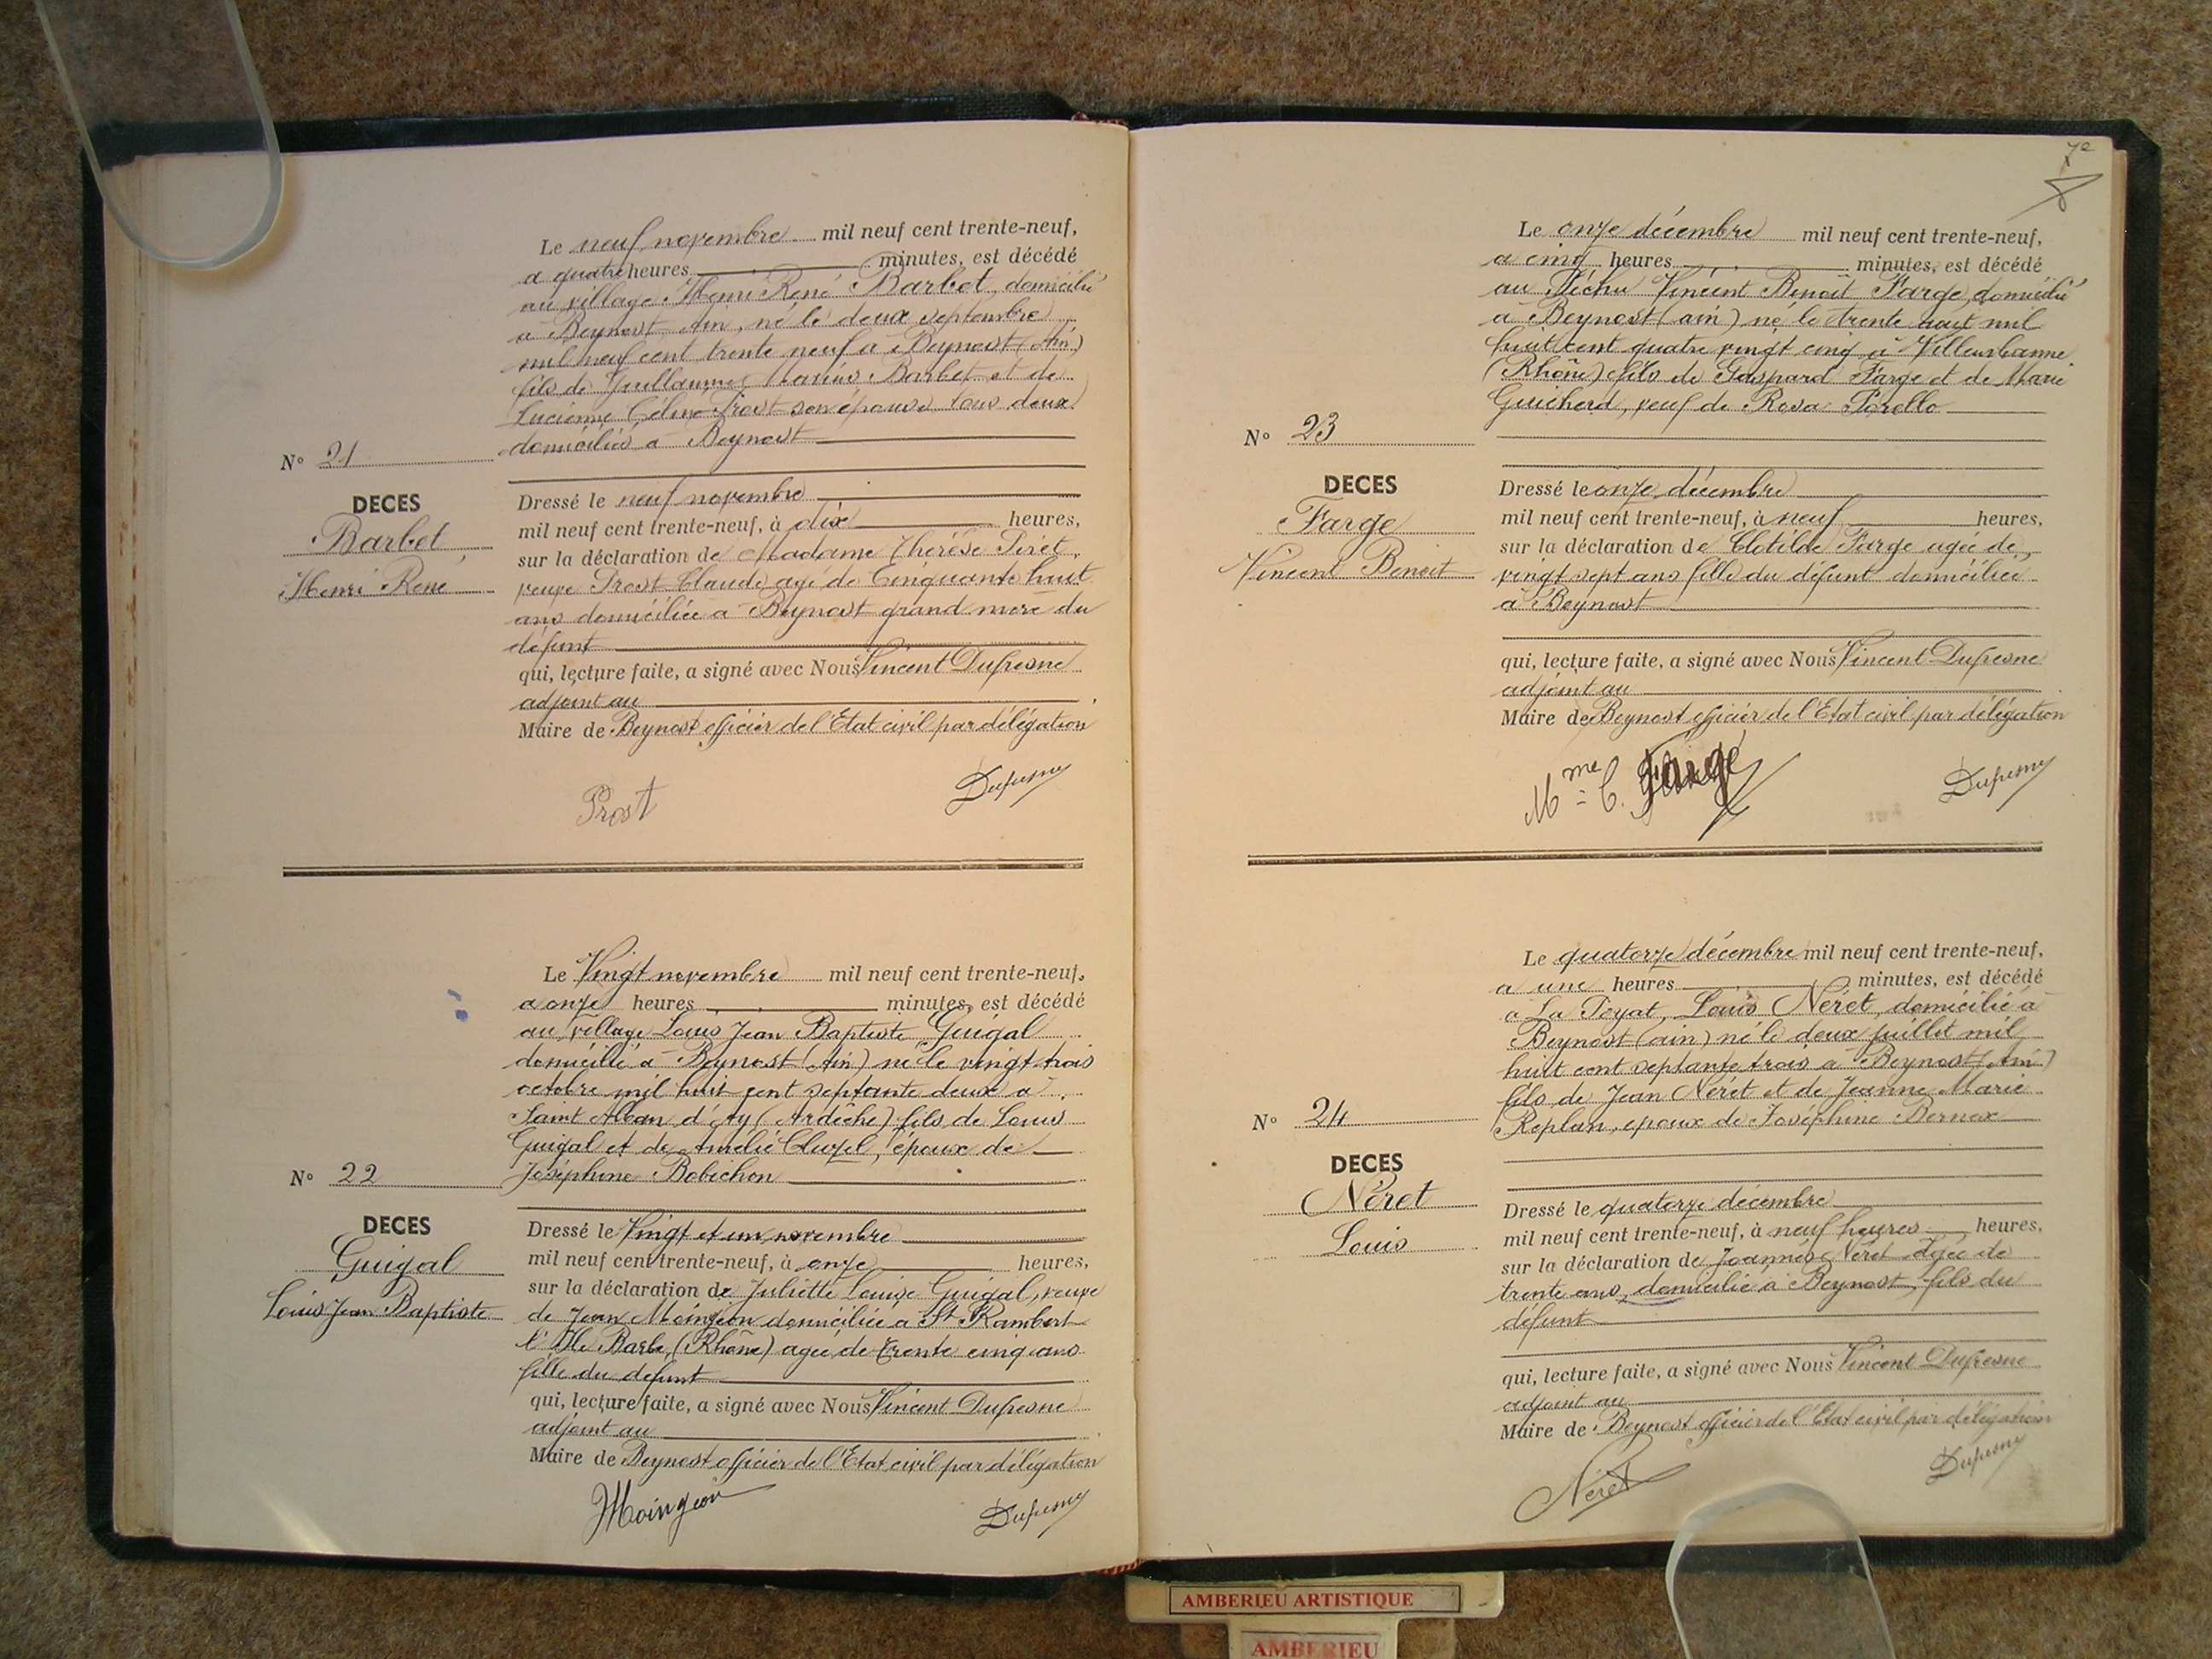 Le neuf novembre mil neuf cent trente-neuf,
a quatre heures minutes, est décédé
au village Henri René Barbet, domicilié
a Beynost Ain, né le deux septembre
mil neuf cent trente neuf a Beynost (Ain)
fils de Guillaume Marius Barbet et de
Lucienne Céline Prost son épouse tous deux
domiciliés a Beynost
N° 21
DECES
Barbet
Henri René
Dressé le neuf novembre
mil neuf cent trente-neuf, à dix heures,
sur la déclaration de Madame Thérèse Piret,
veuve Prost Claude, agé de Cinquante huit
ans domiciliée a Beynost grand mere du
défunt
qui, lecture faite, a signé avec Nous Vincent Dufresne
adjoint au
Maire de Beynost officier de l'Etat civil par délégation
Prost
Dufresne
Le Vingt novembre mil neuf cent trente-neuf,
a onze heures minutes, est décédé
au village Louis Jean Baptiste Guigal
domicilié a Beynost (Ain) né le vingt trois
octobre mil huit cent septante deux a
Saint Alban d'Ay (Ardêche) fils de Louis
Guigal et de Amélie Cluzel, époux de
Joséphine Bobichon
N° 22
DECES
Guigal
Louis Jean Baptiste
Dressé le Vingt et un novembre
mil neuf cent trente-neuf, à onze heures,
sur la déclaration de Juliette Louise Guigal, veuve
de Jean Moingeon domiciliée a St Rambert
l'Ile Barbe, (Rhône) agée de trente cinq ans
fille du défunt
qui, lecture faite, a signé avec Nous Vincent Dufresne
adjoint au
Maire de Beynost officier de l'Etat civil par délégation
Moingeon
Dufresne
72
Le onze décembre mil neuf cent trente-neuf,
a cinq heures minutes, est décédé
au Péchu Vincent Benoit Farge, domicilié
a Beynost (ain) né le trente août mil
huit cent quatre vingt cinq a Villeurbanne
(Rhône) fils de Gaspard Farge et de Marie
Guicherd, veuf de Rosa Porello
N° 23
DECES
Farge
Vincent Benoit
Dressé le onze décembre
mil neuf cent trente-neuf, à neuf heures,
sur la déclaration de Clotilde Farge agée de
vingt sept ans fille du défunt domiciliée
a Beynost
qui, lecture faite, a signé avec Nous Vincent Dufresne
adjoint au
Maire de Beynost officier de l'Etat civil par délégation
Mme C. Farge
Dufresne
Le quatorze décembre mil neuf cent trente-neuf,
a une heures minutes, est décédé
a La Poyat, Louis Néret, domicilié a
Beynost (ain) né le deux juillet mil
huit cent septante trois a Beynost (Ain)
fils de Jean Néret et de Jeanne Marie
Replan, epoux de Joséphine Bernex
N° 24
DECES
Néret
Louis
Dressé le quatorze décembre
mil neuf cent trente-neuf, à neuf heures heures,
sur la déclaration de Joannès Néret agée de
trente ans, domicilié à Beynost, fils du
défunt
qui, lecture faite, a signé avec Nous Vincent Dufresne
adjoint au
Maire de Beynost officier de l'Etat civil par délégation
Néret
Dufresne
AMBERIEU ARTISTIQUE
AMBERIEU